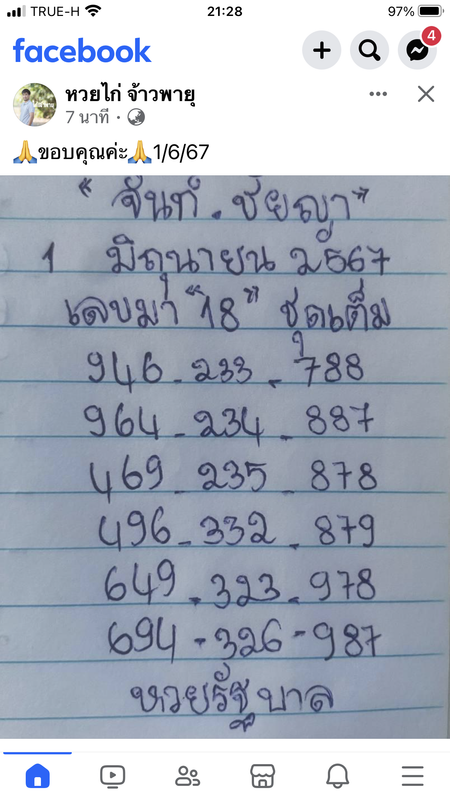 TRUE-H 21:28 97%
facebook 4
หวยไก่ จ้าวพายุ
7 นาที ·
🙏ขอบคุณค่ะ🙏1/6/67
"จันทร์. ชัยญา"
1 มิถุนายน 2567
เลขมา "18" ชุดเต็ม
946 - 233 - 788
964 - 234 - 887
469 - 235 - 878
496 - 332 - 879
649 - 323 - 978
694 - 326 - 987
หวยรัฐบาล